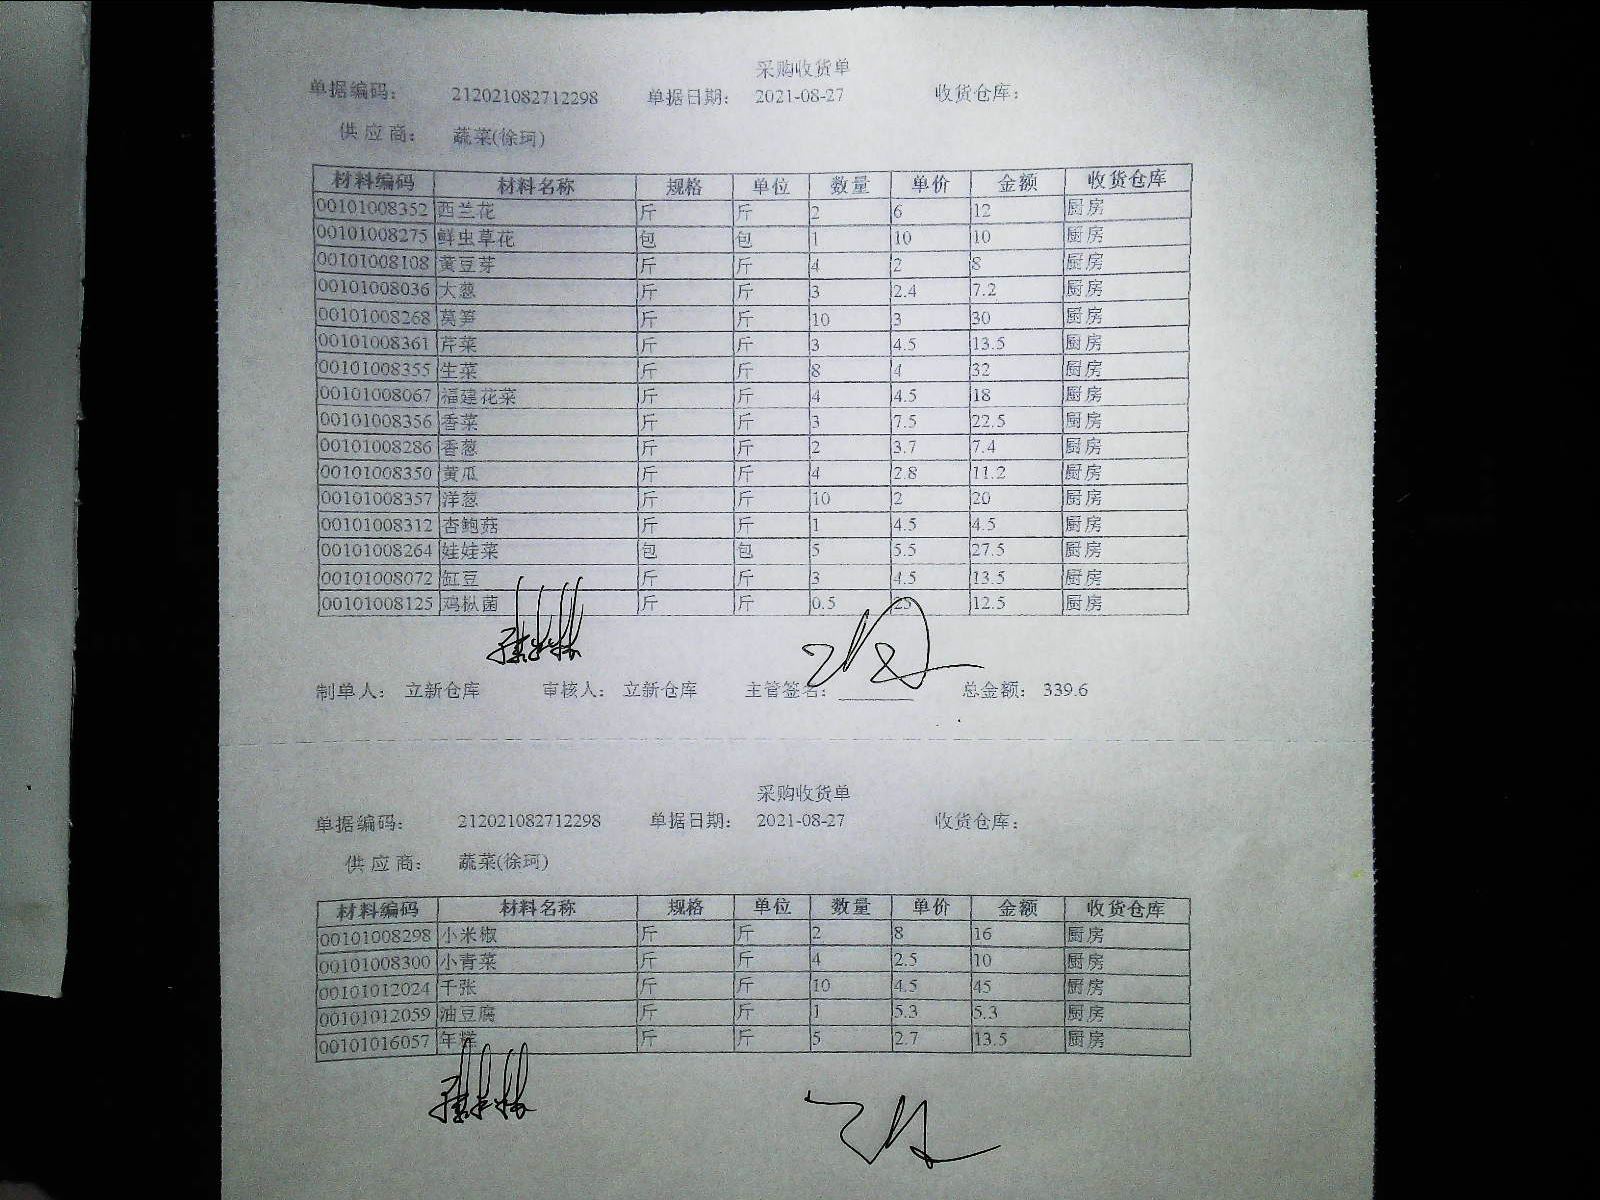 采购收货单
单据编码： 212021082712298 单据日期： 2021-08-27 收货仓库：
供 应 商： 蔬菜(徐珂)
材料编码 材料名称 规格 单位 数量 单价 金额 收货仓库
00101008352 西兰花 斤 斤 2 6 12 厨房
00101008275 鲜虫草花 包 包 1 10 10 厨房
00101008108 黄豆芽 斤 斤 4 2 8 厨房
00101008036 大葱 斤 斤 3 2.4 7.2 厨房
00101008268 莴笋 斤 斤 10 3 30 厨房
00101008361 芹菜 斤 斤 3 4.5 13.5 厨房
00101008355 生菜 斤 斤 8 4 32 厨房
00101008067 福建花菜 斤 斤 4 4.5 18 厨房
00101008356 香菜 斤 斤 3 7.5 22.5 厨房
00101008286 香葱 斤 斤 2 3.7 7.4 厨房
00101008350 黄瓜 斤 斤 4 2.8 11.2 厨房
00101008357 洋葱 斤 斤 10 2 20 厨房
00101008312 杏鲍菇 斤 斤 1 4.5 4.5 厨房
00101008264 娃娃菜 包 包 5 5.5 27.5 厨房
00101008072 缸豆 斤 斤 3 4.5 13.5 厨房
00101008125 鸡枞菌 斤 斤 0.5 25 12.5 厨房
制单人： 立新仓库 审核人： 立新仓库 主管签名： 总金额： 339.6
采购收货单
单据编码： 212021082712298 单据日期： 2021-08-27 收货仓库：
供 应 商： 蔬菜(徐珂)
材料编码 材料名称 规格 单位 数量 单价 金额 收货仓库
00101008298 小米椒 斤 斤 2 8 16 厨房
00101008300 小青菜 斤 斤 4 2.5 10 厨房
00101012024 千张 斤 斤 10 4.5 45 厨房
00101012059 油豆腐 斤 斤 1 5.3 5.3 厨房
00101016057 年糕 斤 斤 5 2.7 13.5 厨房